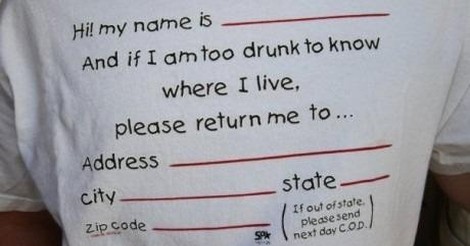 Hi! my name is
And if I am too drunk to know
where I live,
please return me to...
Address
City
state
Zip Code
(If out of state,
please send
next day C.O.D.)